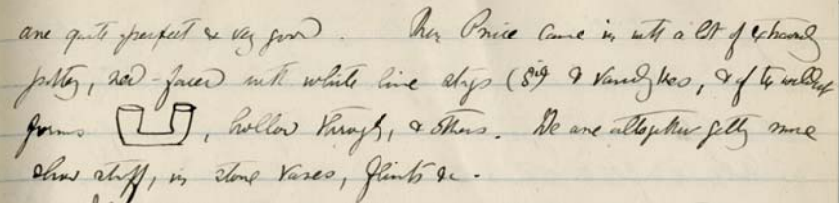 are quite perfect & very good. Then Price came in with a lot of
pottery, red-faced with white line, & of the wildest
forms , hollow through, & others. We are altogether getting more
show stuff, in stone vases, flints &c.